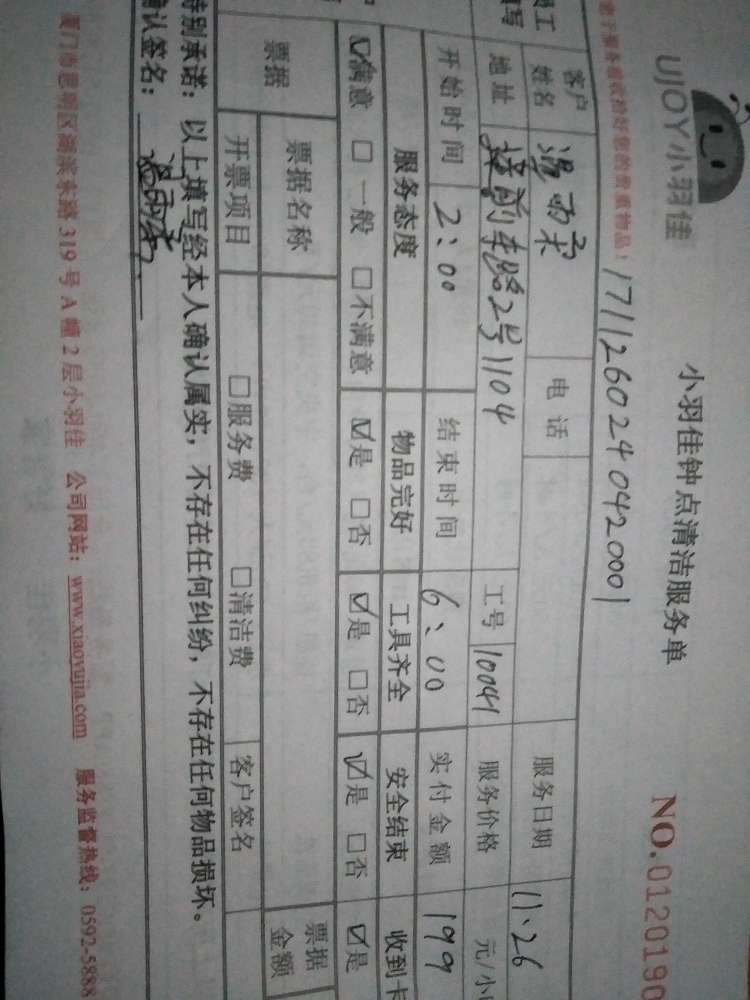 UJOY小羽佳
小羽佳钟点清洁服务单
NO.0120190
贵重物品：17112602404200001
客户姓名 汤雨宗 电话 服务日期 11.26
地址 前东路2号1104 工号 10041 服务价格 元/小
开始时间 2:00 结束时间 6:00 实付金额 199
服务态度 物品完好 工具齐全 安全结束 收到卡
☑满意 □一般 □不满意 ☑是 □否 ☑是 □否 ☑是 □否 ☑是
票据 票据名称 票据金额
开票项目 □服务费 □清洁费 客户签名
特别承诺：以上填写经本人确认属实，不存在任何纠纷，不存在任何物品损坏。
确认签名：
厦门市思明区湖滨东路 319 号 A 幢 2 层小羽佳 公司网站：www.xiaoyujia.com 服务监督热线：0592-5888